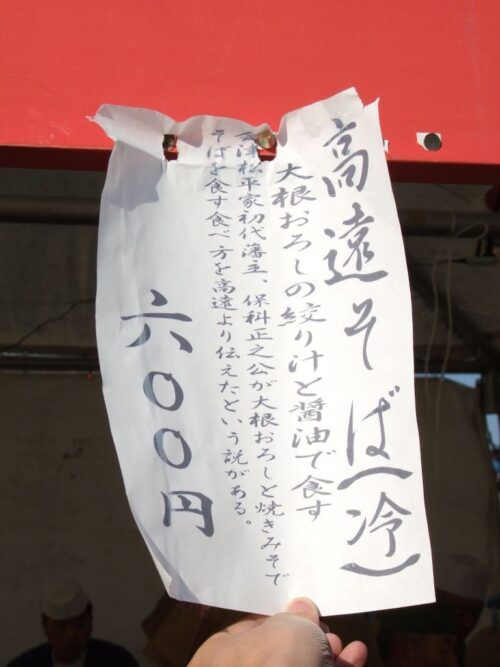 高遠そば（冷）
大根おろしの絞り汁と醤油で食す
会津松平家初代藩主、保科正之公が大根おろしと焼きみそで
そばを食す食べ方を高遠より伝えたという説がある。
六〇〇円